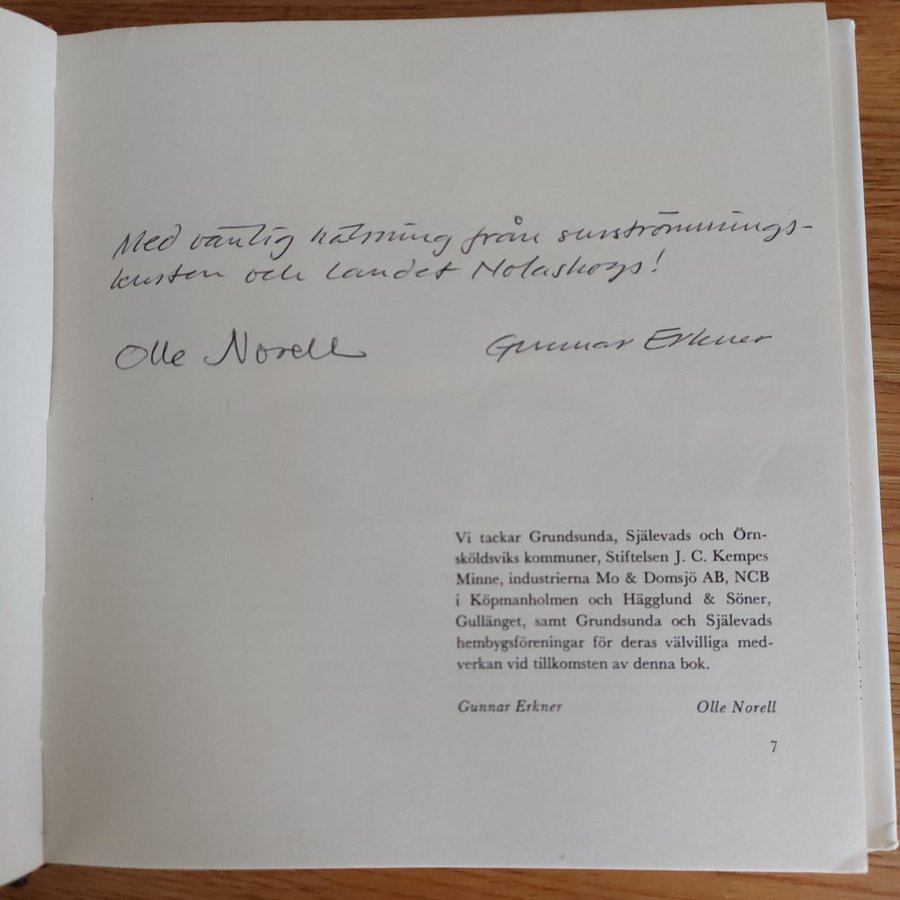 Med vänlig hälsning från surströmmings-
kusten och landet Nolaskogs!
Olle Norell Gunnar Erkner
Vi tackar Grundsunda, Själevads och Örn-
sköldsviks kommuner, Stiftelsen J. C. Kempes
Minne, industrierna Mo & Domsjö AB, NCB
i Köpmanholmen och Hägglund & Söner,
Gullänget, samt Grundsunda och Själevads
hembygsföreningar för deras välvilliga med-
verkan vid tillkomsten av denna bok.
Gunnar Erkner Olle Norell
7